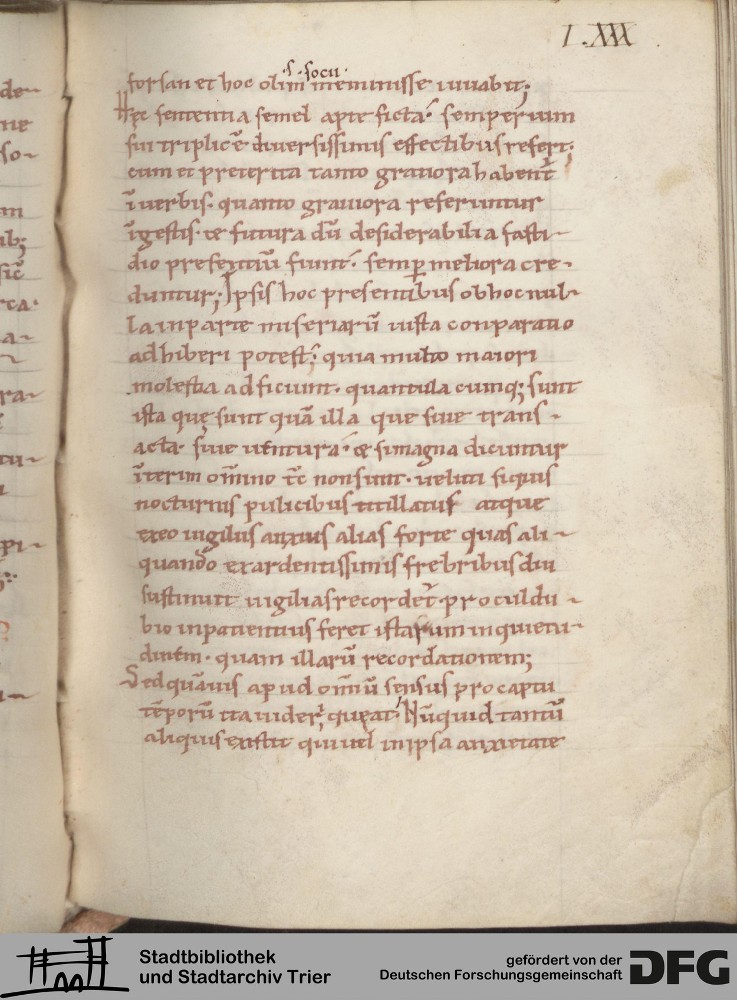 L.XXX
.s. socii.
forsan et hoc olim meminisse iuuabit;
Hęc sententia semel apte ficta. semper uim
sui triplicē diuersissimis effectibus refert;
cum et preterita tanto grauiora habent̄
ī uerbis. quanto grauiora referuntur
ī gestis. & futura dū desiderabilia fasti-
dio presentiū fiunt. semp meliora cre-
duntur; Ipsis hoc presentibus ob hoc nul-
la in parte miseriarū iusta conparatio
adhiberi potest; quia multo maiori
molestia adficiunt. quantulacumq; sunt
ista quę sunt quā illa que siue trans-
acta. siue uentura. & si magna dicuntur
īterim om̄ino tc̄ non sunt. ueluti siquis
nocturnis pulicibus titillatus atque
ex eo uigilus anxius alias forte quas ali-
quando exardentissimis frebribus diu
sustinuit uigilias recordet̄. proculdu-
bio inpatientius feret istarum inquietu-
dinem. quam illarū recordationem;
Sed quāuis apud om̄iū sensus pro captu
tēporū ita uider̄ queat. Nūquid tantū
aliquis extitit qui uel in ipsa anxietate
de-
ne
so-
ib;
sic̄
rca.
a-
ra-
tu-
pi-
Stadtbibliothek
und Stadtarchiv Trier
gefördert von der
Deutschen Forschungsgemeinschaft
DFG